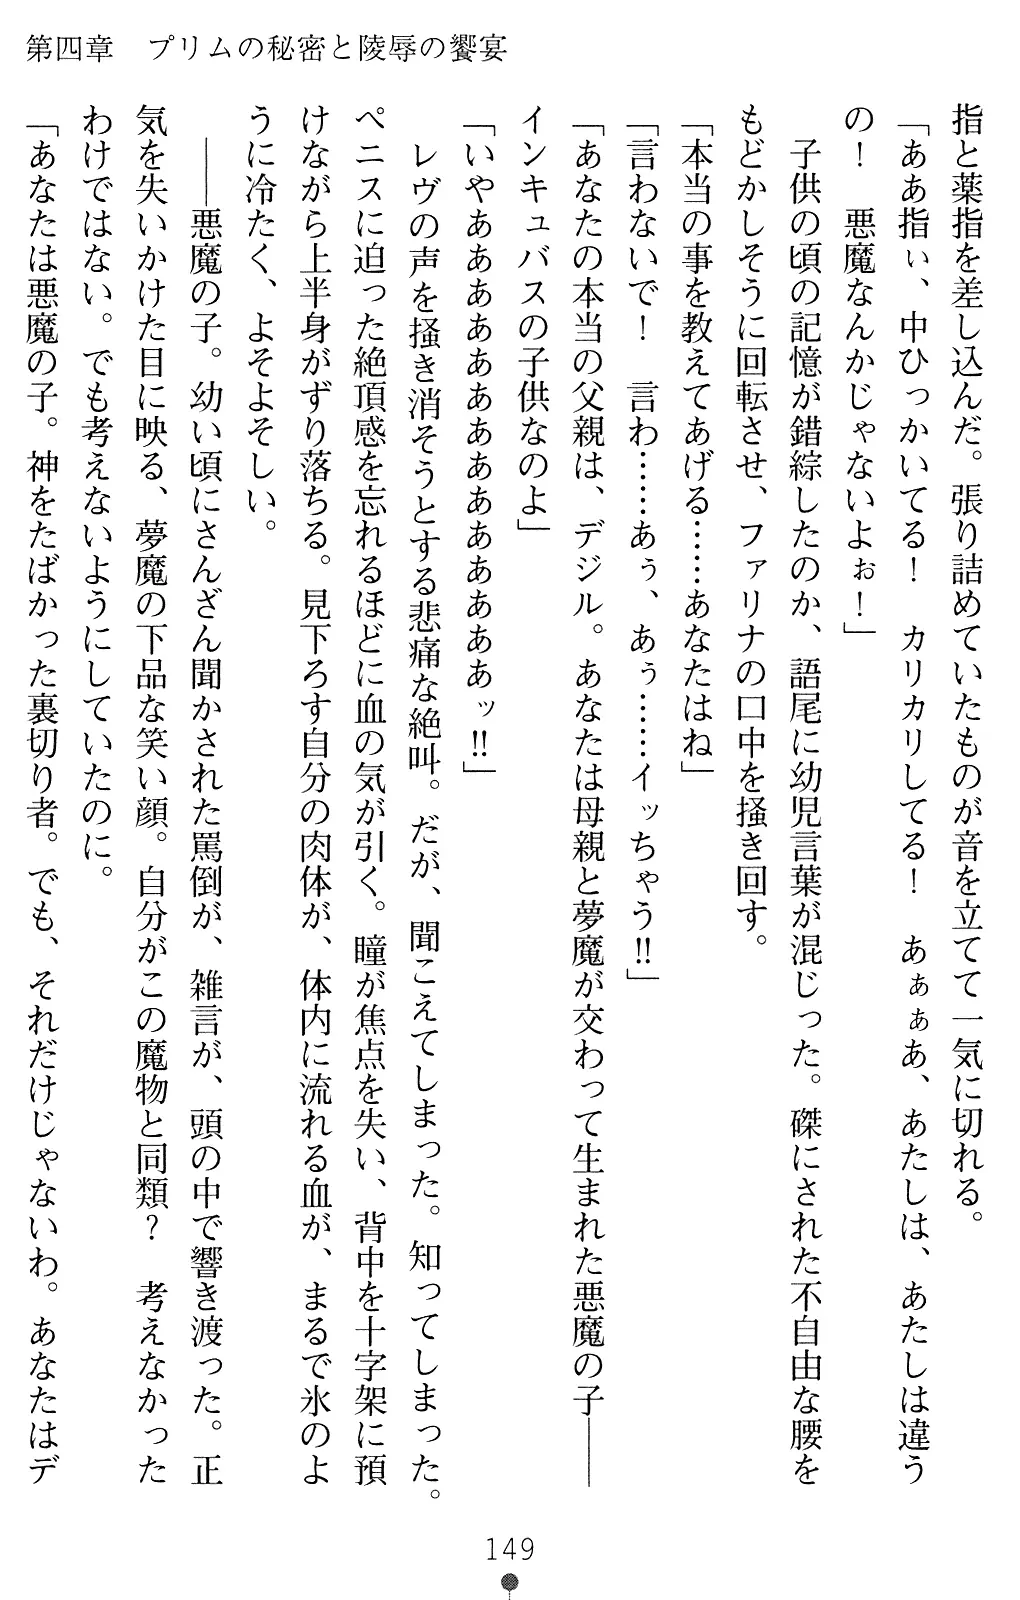 第四章　プリムの秘密と陵辱の饗宴
指と薬指を差し込んだ。張り詰めていたものが音を立てて一気に切れる。
「ああ指ぃ、中ひっかいてる！　カリカリしてる！　あぁぁあ、あたしは、あたしは違う
の！　悪魔なんかじゃないよぉ！」
　子供の頃の記憶が錯綜したのか、語尾に幼児言葉が混じった。磔にされた不自由な腰を
もどかしそうに回転させ、ファリナの口中を掻き回す。
「本当の事を教えてあげる……あなたはね」
「言わないで！　言わ……あぅ、あぅ……イッちゃう!!」
「あなたの本当の父親は、デジル。あなたは母親と夢魔が交わって生まれた悪魔の子――
インキュバスの子供なのよ」
「いやああああああああああああああぁッ!!」
　レヴの声を掻き消そうとする悲痛な絶叫。だが、聞こえてしまった。知ってしまった。
ペニスに迫った絶頂感を忘れるほどに血の気が引く。瞳が焦点を失い、背中を十字架に預
けながら上半身がずり落ちる。見下ろす自分の肉体が、体内に流れる血が、まるで氷のよ
うに冷たく、よそよそしい。
　――悪魔の子。幼い頃にさんざん聞かされた罵倒が、雑言が、頭の中で響き渡った。正
気を失いかけた目に映る、夢魔の下品な笑い顔。自分がこの魔物と同類？　考えなかった
わけではない。でも考えないようにしていたのに。
「あなたは悪魔の子。神をたばかった裏切り者。でも、それだけじゃないわ。あなたはデ
149